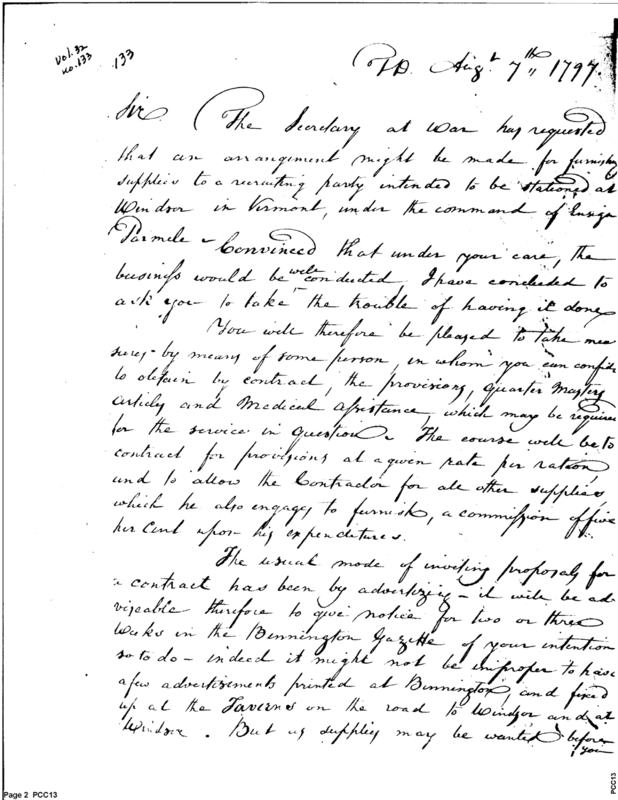 Vol. 32
no. 133
133
T.D. Augt. 7th 1797.
Sir
The Secretary at War has requested
that an arrangement might be made for furnishg
supplies to a recruiting party intended to be stationed at
Windsor in Vermont, under the command of Ensign
Parmele - Convinced that under your care, the
business would be well conducted, I have concluded to
ask you to take the trouble of having it done
You will therefore be pleased to take mea
sures - by means of some person, in whom you can confide
to obtain by contract, the provisions, quarter Masters
articles and Medical assistance, which may be required
for the service in question. The course will be to
contract for provisions at a given rate per ration
and to allow the Contractor for all other supplies
which he also engages to furnish, a commission of five
per Cent upon his expenditures.
The usual mode of inviting proposals for
a contract has been by advertizing - it will be ad
viseable therefore to give notice for two or three
Weeks in the Bennington Gazette of your intention
so to do - indeed it might not be improper to have
a few advertisements printed at Bennington, and fixed
up at the Taverns on the road to Windsor and at
Windsor. But as supplies may be wanted before
you
Page 2 PCC13
PCC13